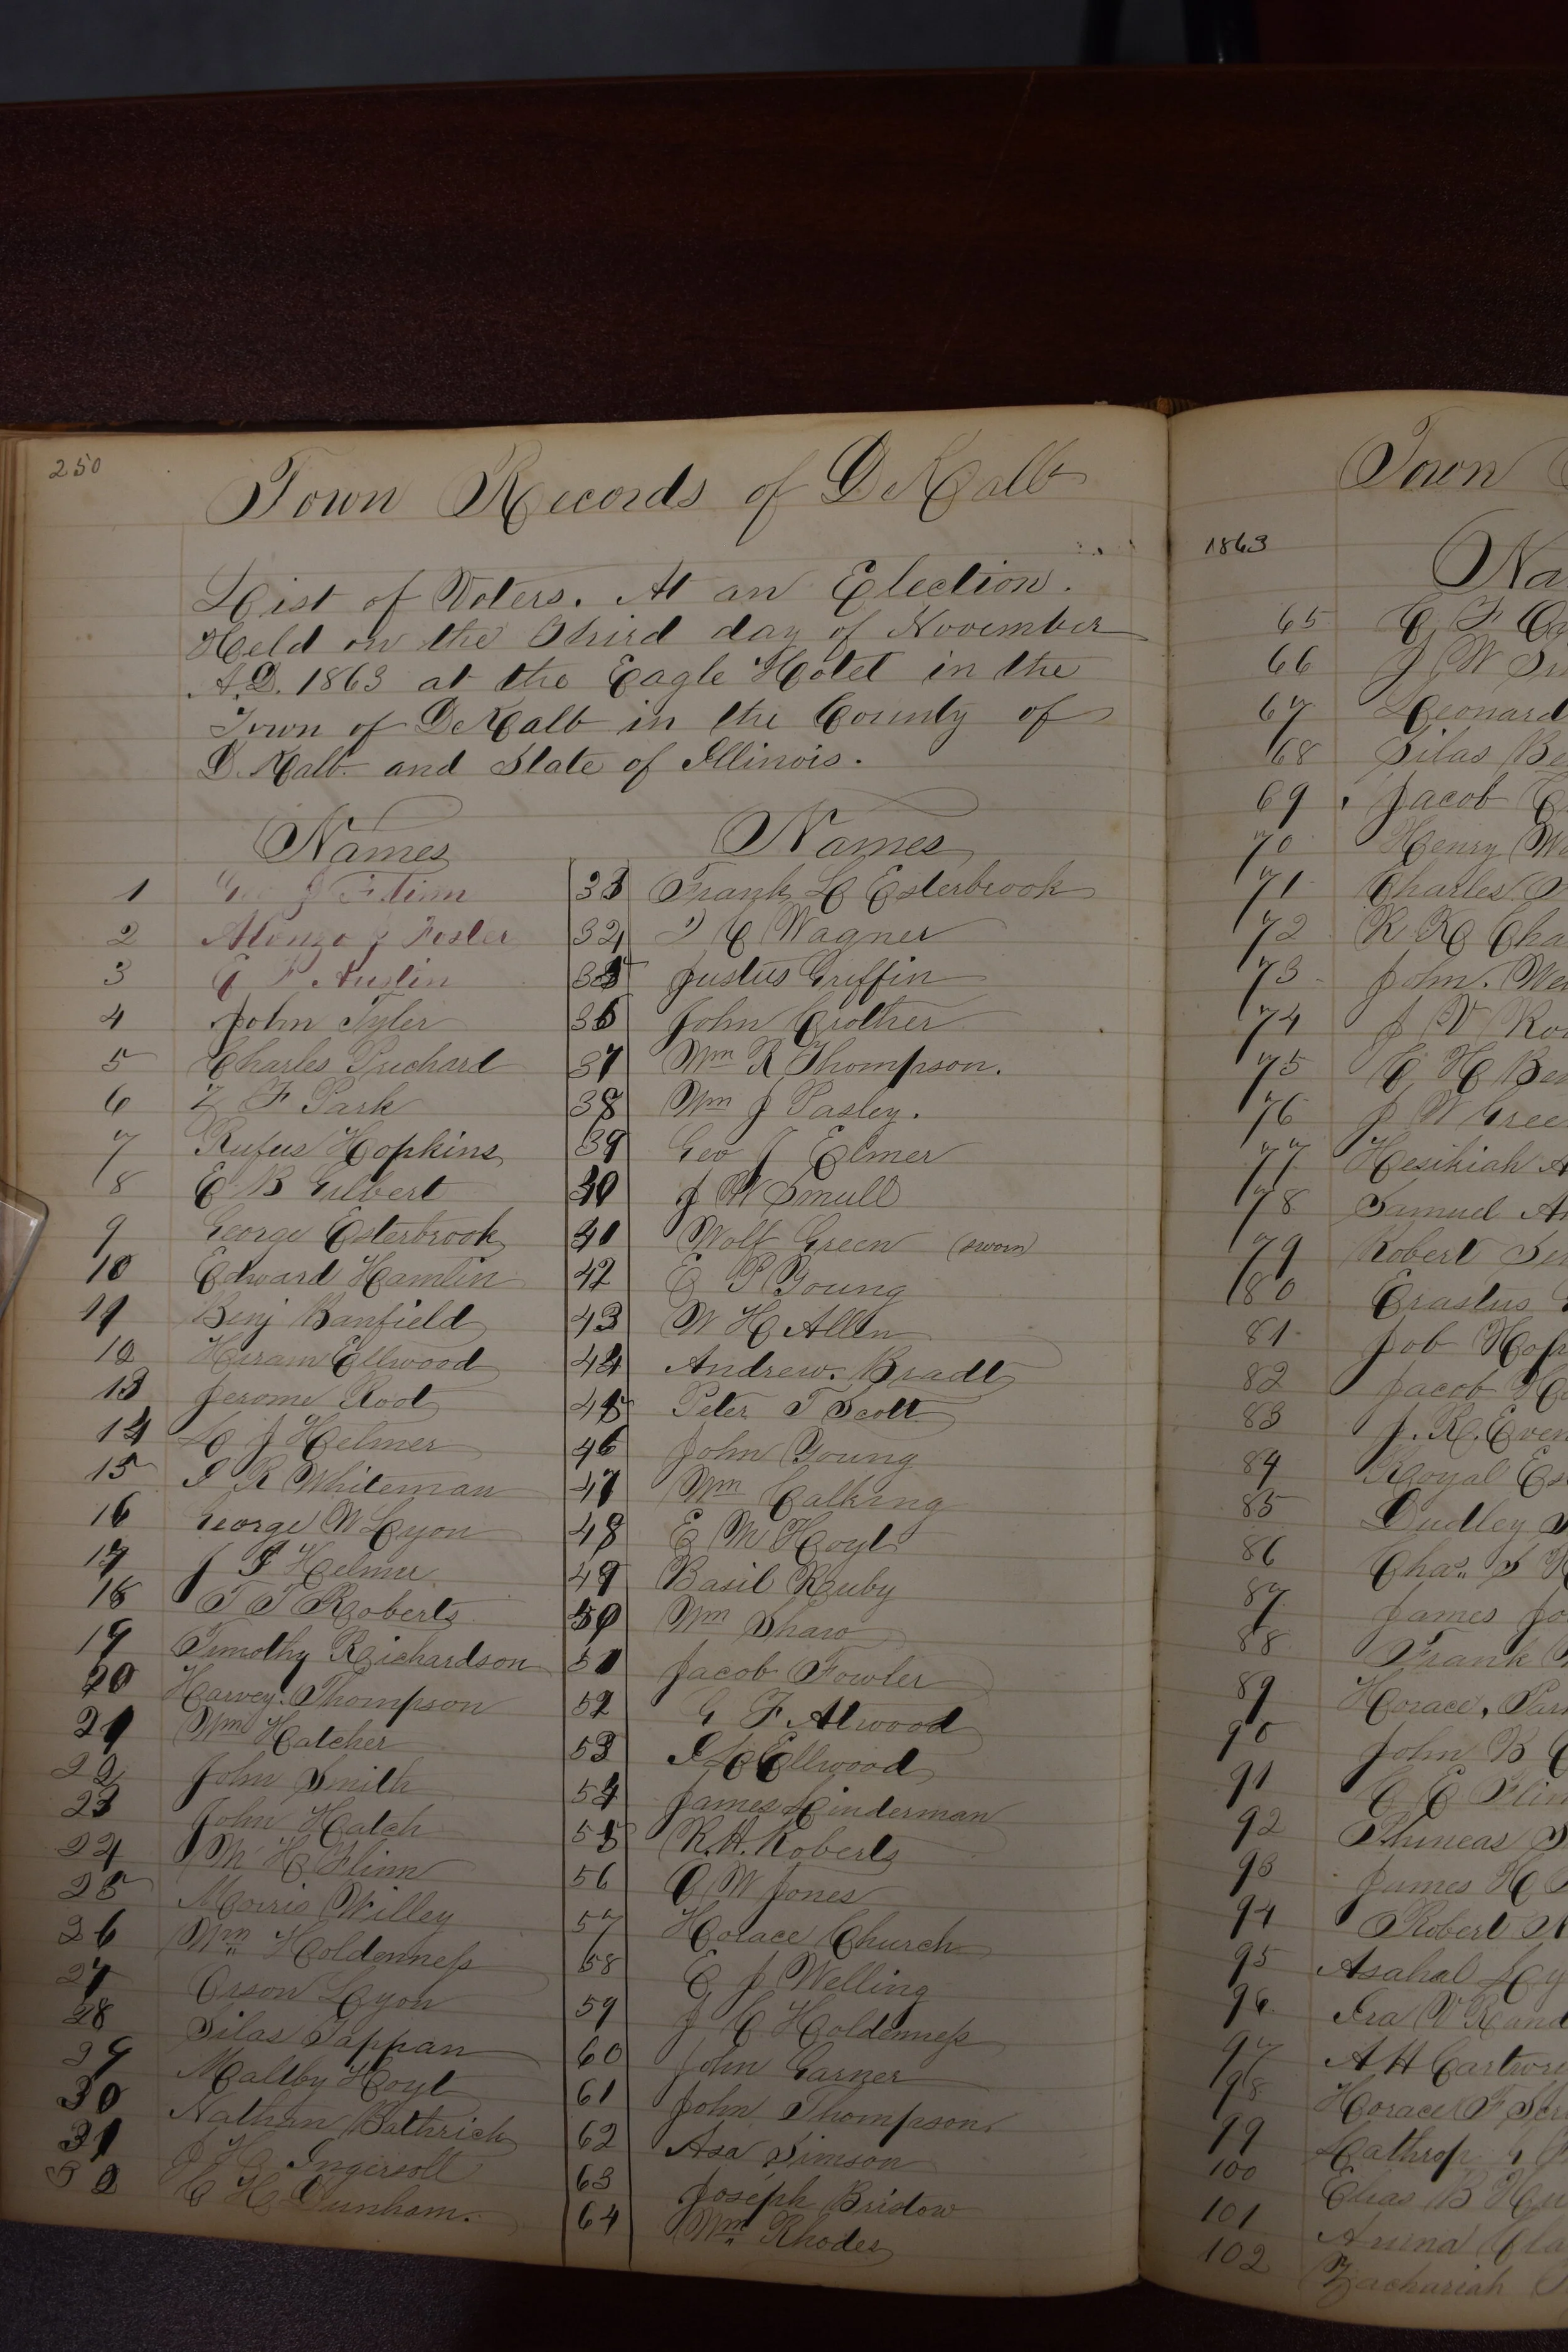 250
Town Records of DeKalb
List of Voters. At an Election.
Held on the Third day of November
A.D. 1863 at the Eagle Hotel in the
Town of DeKalb in the County of
D.Kalb and State of Illinois.
Names
1 Geo J Flinn
2 Alonzo J Foster
3 P Austin
4 John Tyler
5 Charles Prichard
6 Z F Park
7 Rufus Hopkins
8 E B Gilbert
9 George Esterbrook
10 Edward Hamlin
11 Benj Banfield
12 Hiram Ellwood
13 Jerome Root
14 L J Helmer
15 I R Whiteman
16 George W Lyon
17 J F Helmer
18 T T Roberts
19 Timothy Richardson
20 Harvey Thompson
21 Wm Hatcher
22 John Smith
23 John Hatch
24 M H Flinn
25 Morris Willey
26 Wm Holdenness
27 Orson Lyon
28 Silas Tappan
29 Maltby Hoyt
30 Nathan Bathrick
31 J H Ingersoll
32 C H Dunham.
Names
33 Frank L Esterbrook
34 C Wagner
35 Justus Griffin
36 John Crother
37 Wm R Thompson.
38 Wm J Pasley.
39 Geo J Elmer
40 J W Smull
41 Wolf Green (sworn)
42 E P Young
43 W H Allen
44 Andrew. Bradt
45 Peter T Scott
46 John Young
47 Wm Calking
48 E M Hoyt
49 Basil Ruby
50 Wm Shaw
51 Jacob Fowler
52 G F Atwood
53 I L Ellwood
54 James Linderman
55 R. H. Roberts
56 O W Jones
57 Horace Church
58 E J Welling
59 J C Holdenness
60 John Garner
61 John Thompson.
62 Asa Simson
63 Joseph Bristow
64 Wm Rhodes
Town
1863
Na
65 C F
66 J W
67 Leonard
68 Silas Be
69 Jacob
70 Henry
71 Charles
72 R K Cha
73 John. We
74 J V Ro
75 C H Ben
76 J W Gree
77 Hesikiah A
78 Samuel A
79 Robert
80 Erastus
81 Job Hop
82 Jacob
83 J. R. Even
84 Royal Es
85 Dudley
86 Chas. S
87 James Jo
88 Frank
89 Horace, Par
90 John B
91 C E Flin
92 Phineas
93 James H
94 Robert
95 Asahal Ly
96 Ira V Rand
97 A H Cartwri
98 Horace F
99 Lathrop
100 Elias B
101 Cla
102 Zachariah